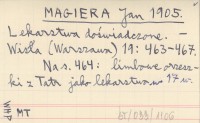 MAGIERA Jan 1905.
Lekarstwa doświadczone. –
Wisła (Warszawa) 19: 463-467.
Na s. 464: limbowe orzesz-
ki z Tatr jako lekarstwo w 17 w.
WHP
MT